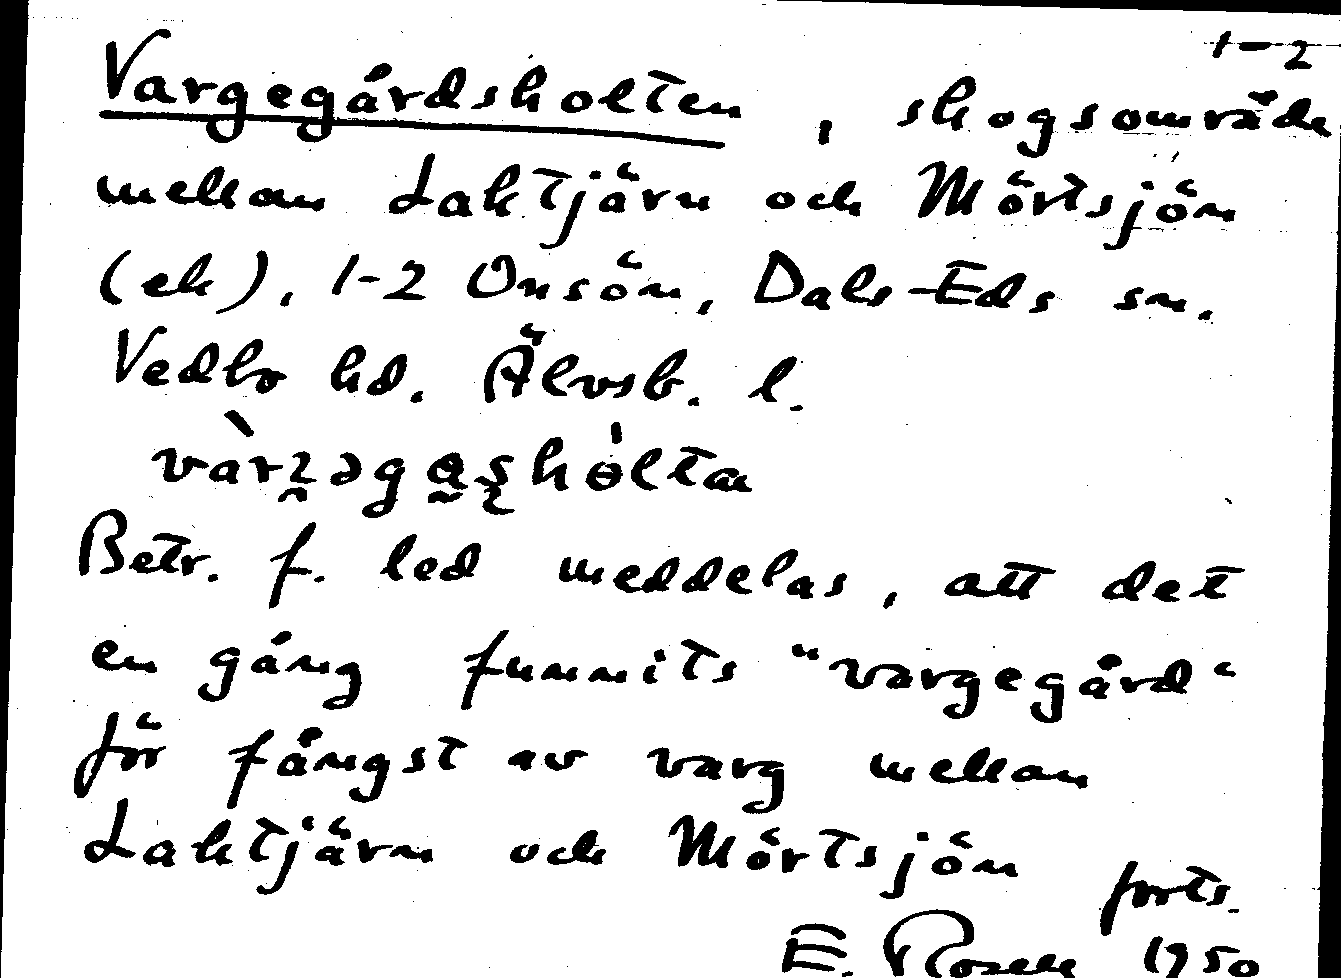 1-2
Vargegårdsholten, skogsområde
mellan Laktjärn och Mörtsjön
(ek), 1-2 Onsön, Dals-Eds sn.
Vedbo hd. Älvsb. l.
Betr. f. led meddelas, att det
en gång funnits "vargegård"
för fångst av varg mellan
Laktjärn och Mörtsjön forts.
E. Rosell 1950